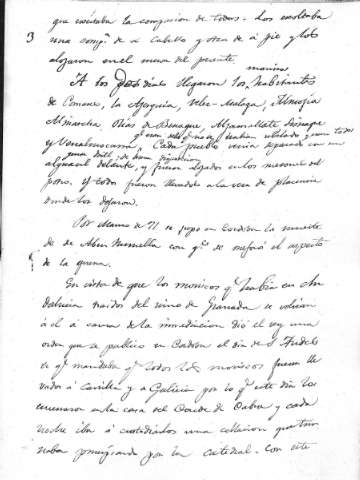 que excitaba la compasion de todos. Los escoltaba
3
una comp.ª de á caballo y otra de á pie y los
alojaron en el meson del puente.
moriscos
A los dos dias llegaron los habitantes
de Comares, la Ajarquia, Velez-Malaga, Almogia
de Benaque,
y Benalmuscarra. Cada pueblo venia separado con un
alguacil delante, y fueron alojados en los mesones del
potro, y todos fueron llevados á la vera de Placencia
donde los dejaron.
Por Marzo de 71 se supo en Cordoba la muerte
de de Aben Humella con q.e se mejoró el aspecto
de la guerra.
En vista de que los moriscos q.e habia en An
dalucia traidos del reino de Granada se volvian
á él á causa de la inmediacion dió el rey una
orden que se publicó en Cordoba el dia de S. Andrés
en q.e mandaba q.e todos los moriscos fueran lle
vados á Castilla y á Galicia por lo q.e este dia los
encerraron en la casa del Conde de Cabra y cada
noche iba á custodiarlos una
por la catedral. Con este